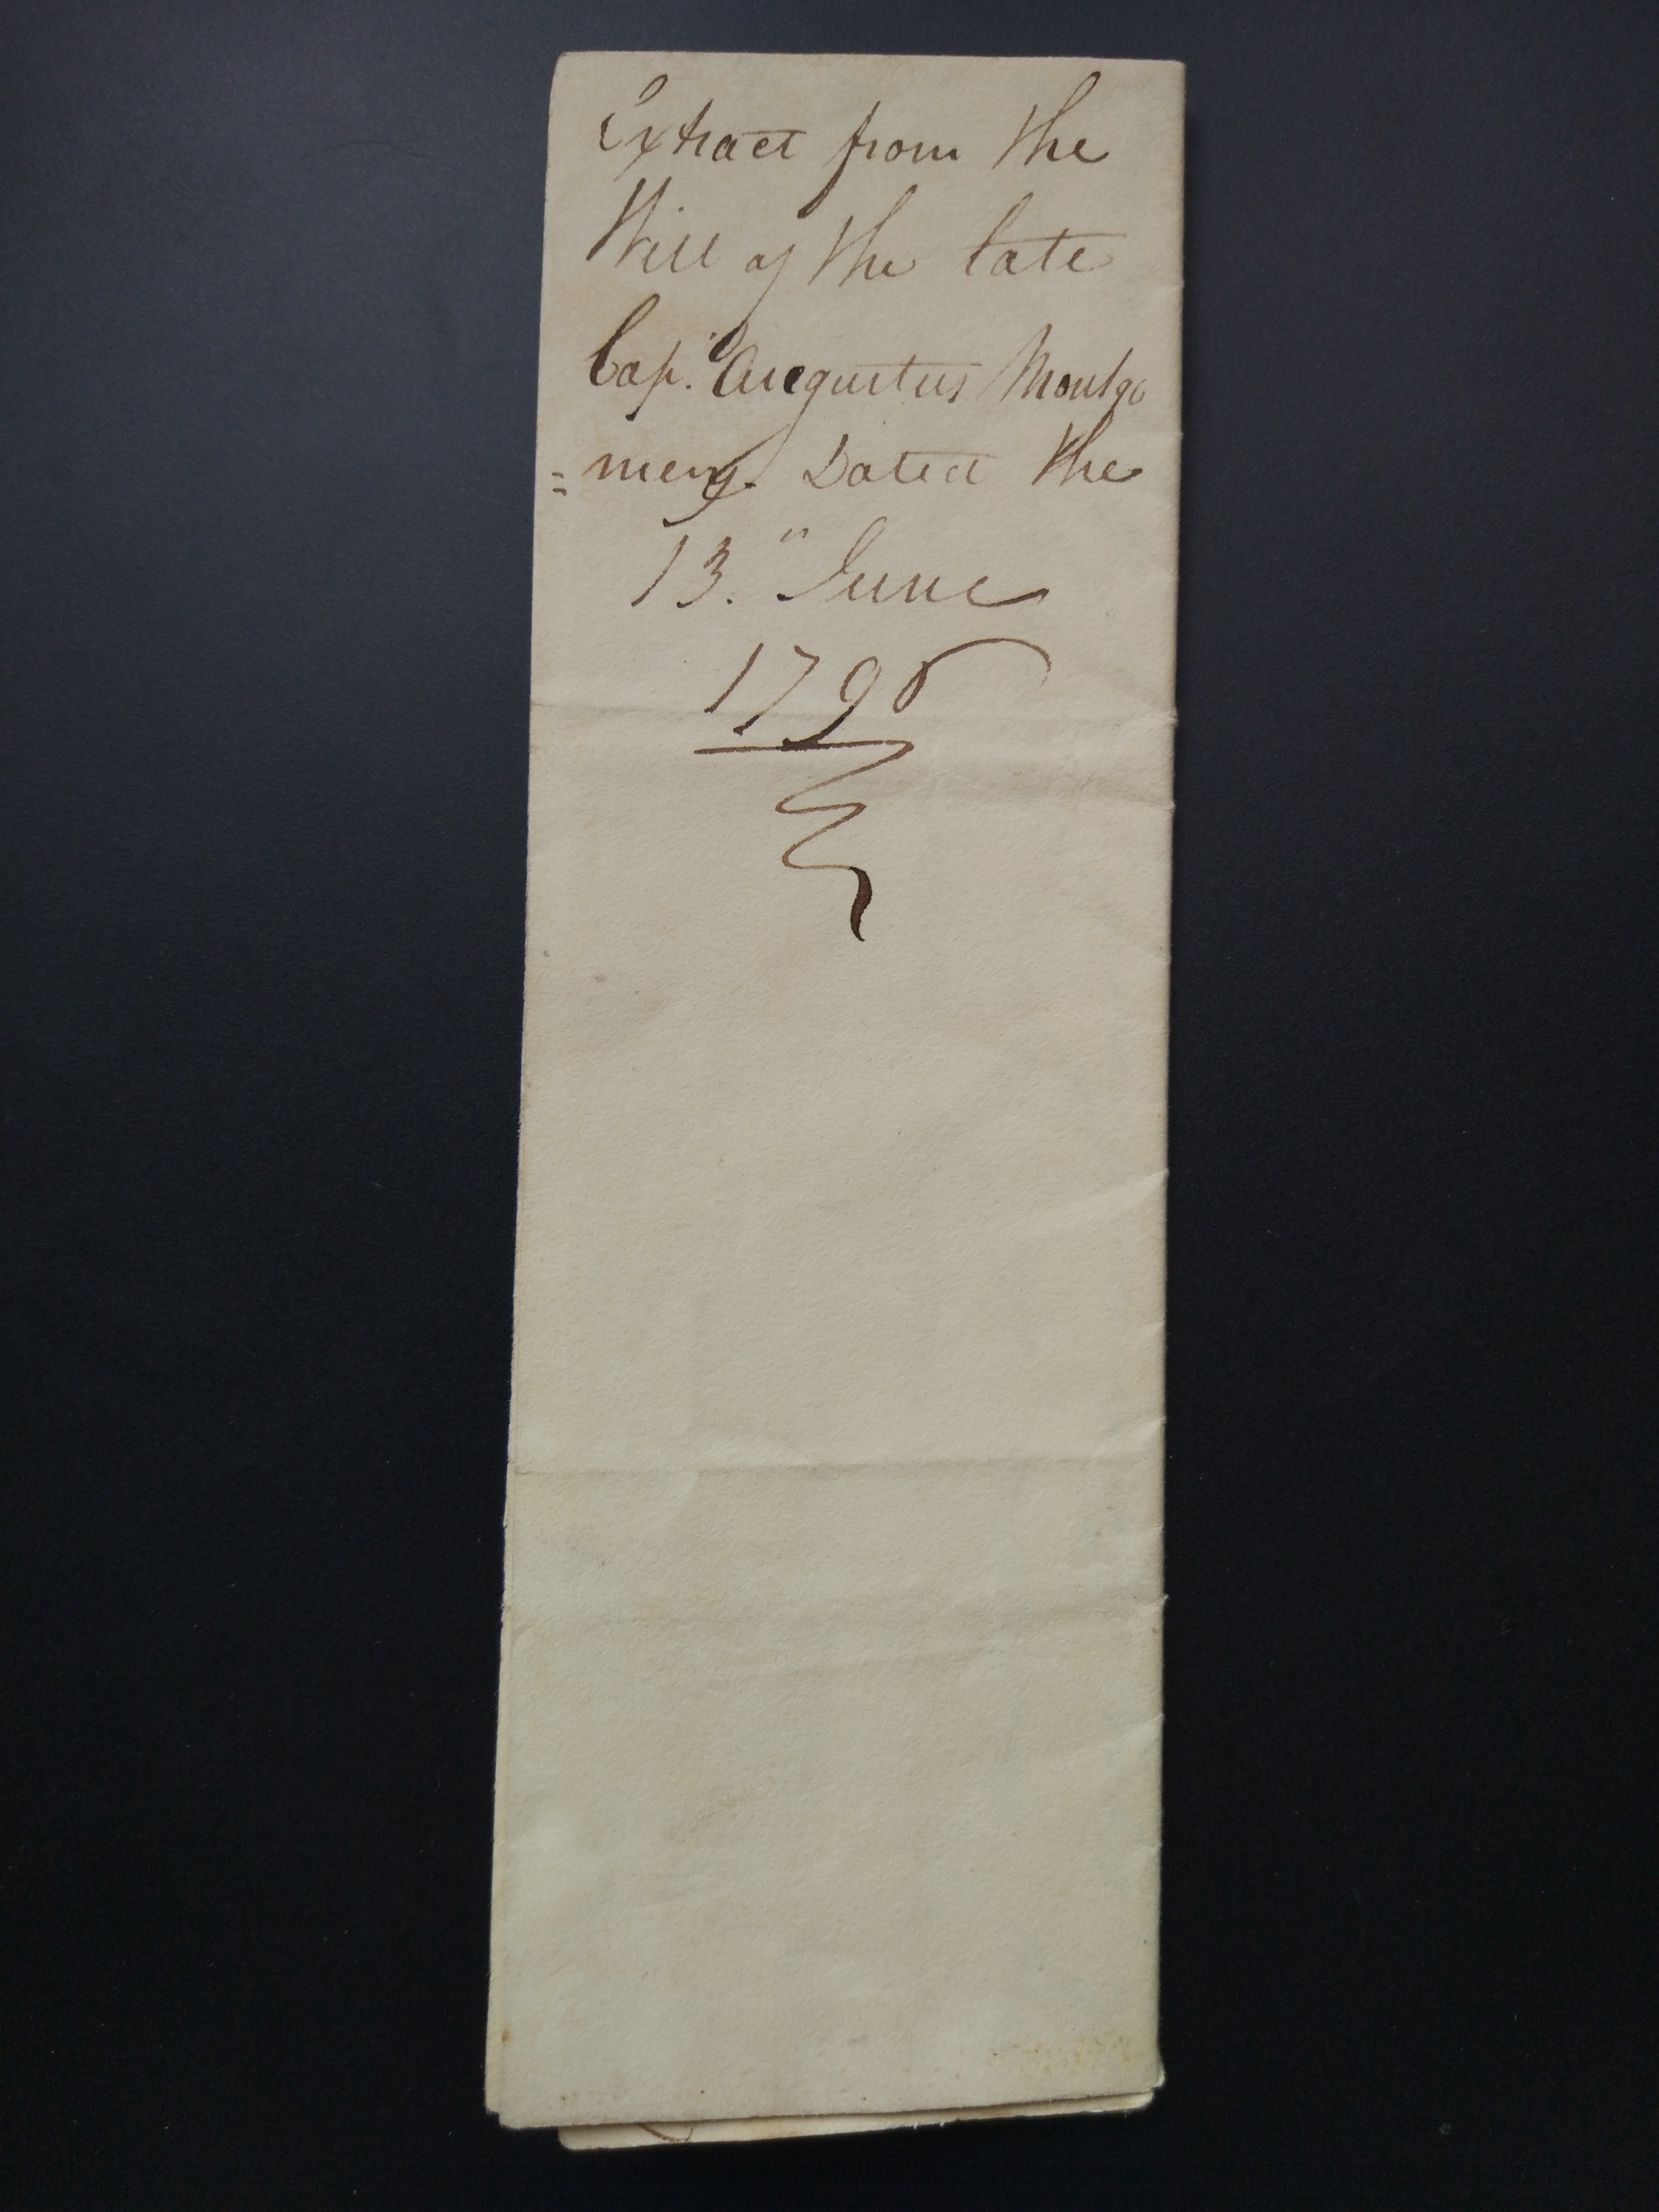 Extract from the
Will of the late
Cap.n Augustus Montgo
=mery. Dated the
13.th June
1796